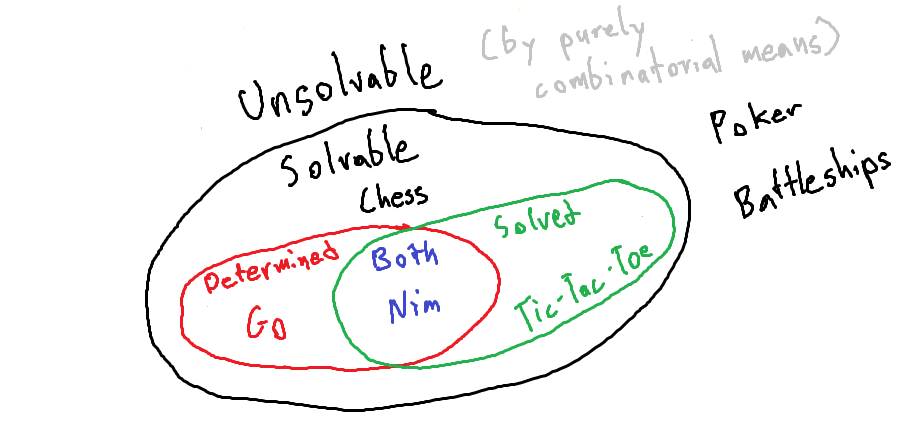 Unsolvable
(by purely
combinatorial means)
Poker
Battleships
Solvable
Chess
Determined
Go
Both
Nim
Solved
Tic-Tac-Toe